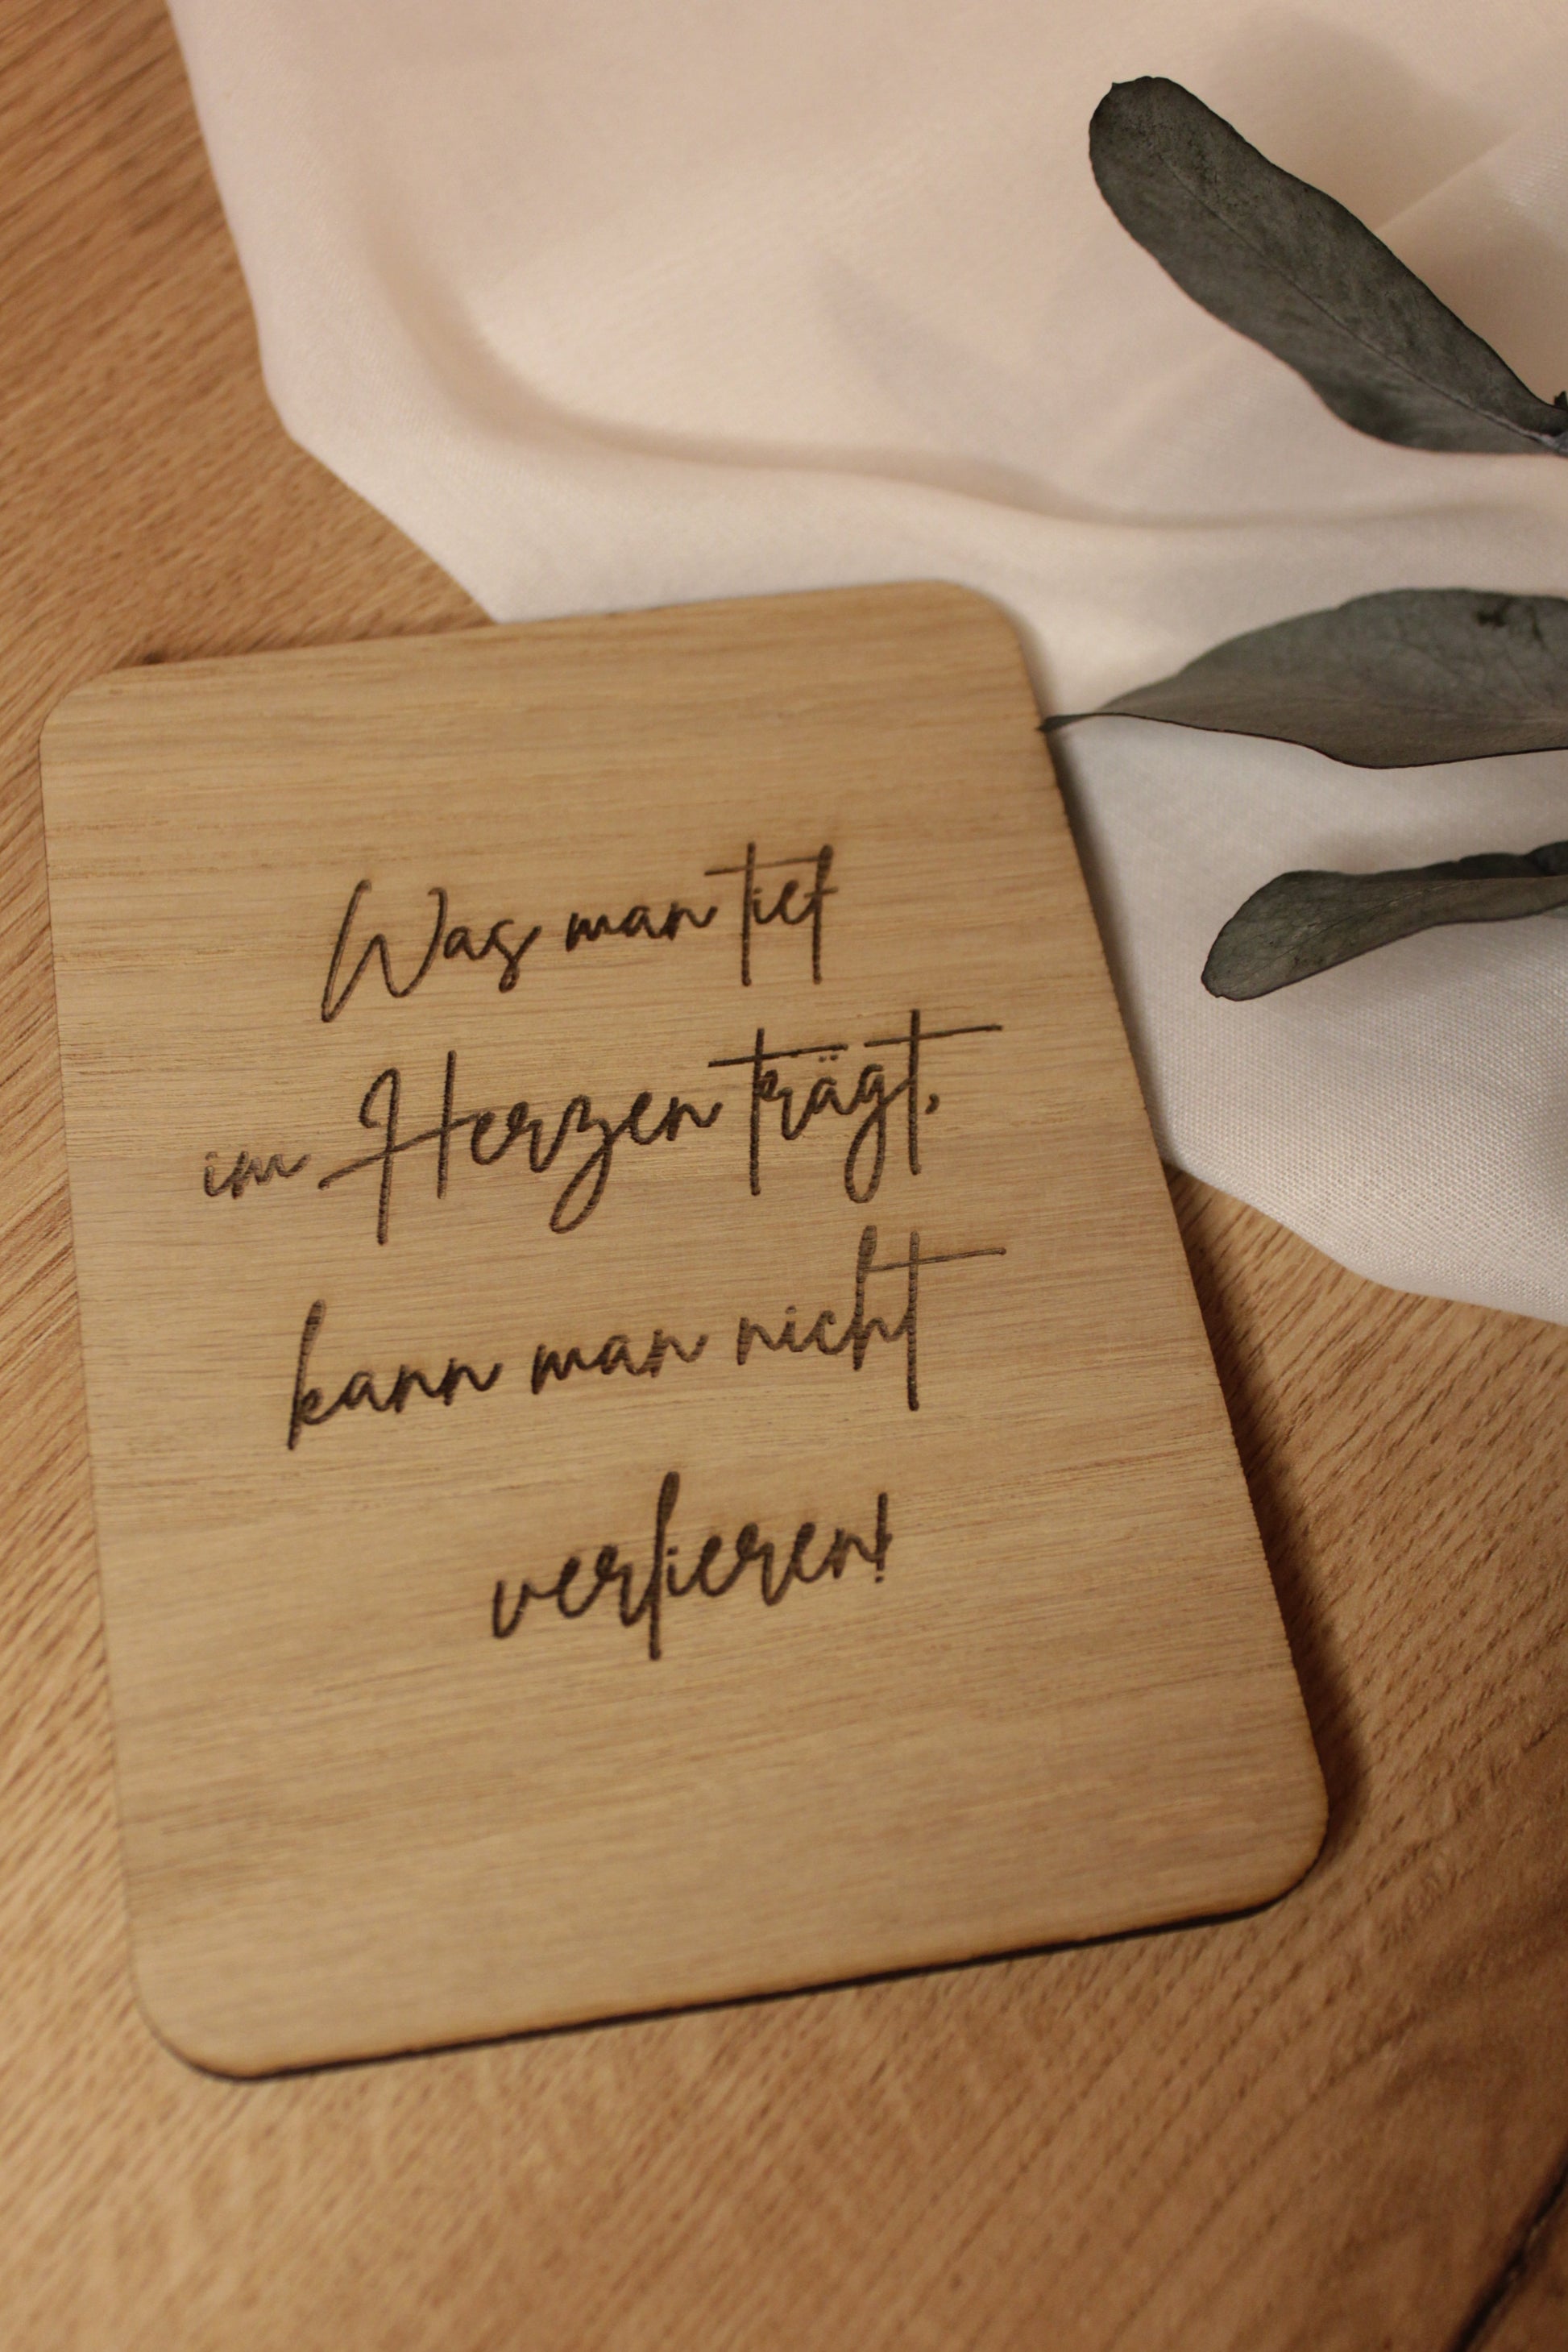 Was man tief
im Herzen trägt,
kann man nicht
verlieren!